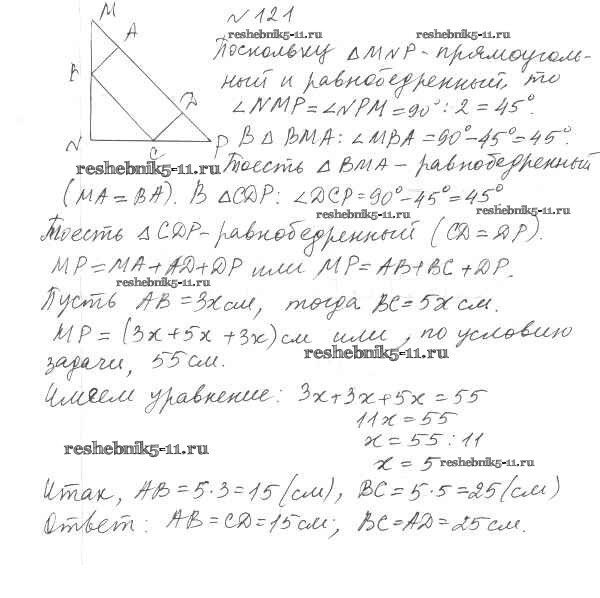 N 121
M
A
reshebnik5-11.ru reshebnik5-11.ru
Поскольку △MNP - прямоуголь-
B
ный и равнобедренный, то
∠NMP = ∠NPM = 90° : 2 = 45°.
D
N C P
В △BMA: ∠MBA = 90° - 45° = 45°.
reshebnik5-11.ru
Тоесть △BMA - равнобедренный
(MA = BA). В △CDP: ∠DCP = 90° - 45° = 45°
reshebnik5-11.ru reshebnik5-11.ru
Тоесть △CDP - равнобедренный (CD = DP).
MP = MA + AD + DP или MP = AB + BC + DP.
reshebnik5-11.ru
Пусть AB = 3x см, тогда BC = 5x см.
MP = (3x + 5x + 3x) см или, по условию
reshebnik5-11.ru
задачи, 55 см.
Имеем уравнение: 3x + 3x + 5x = 55
11x = 55
reshebnik5-11.ru
x = 55 : 11
x = 5 reshebnik5-11.ru
Итак, AB = 5 · 3 = 15 (см), BC = 5 · 5 = 25 (см)
Ответ: AB = CD = 15 см; BC = AD = 25 см.